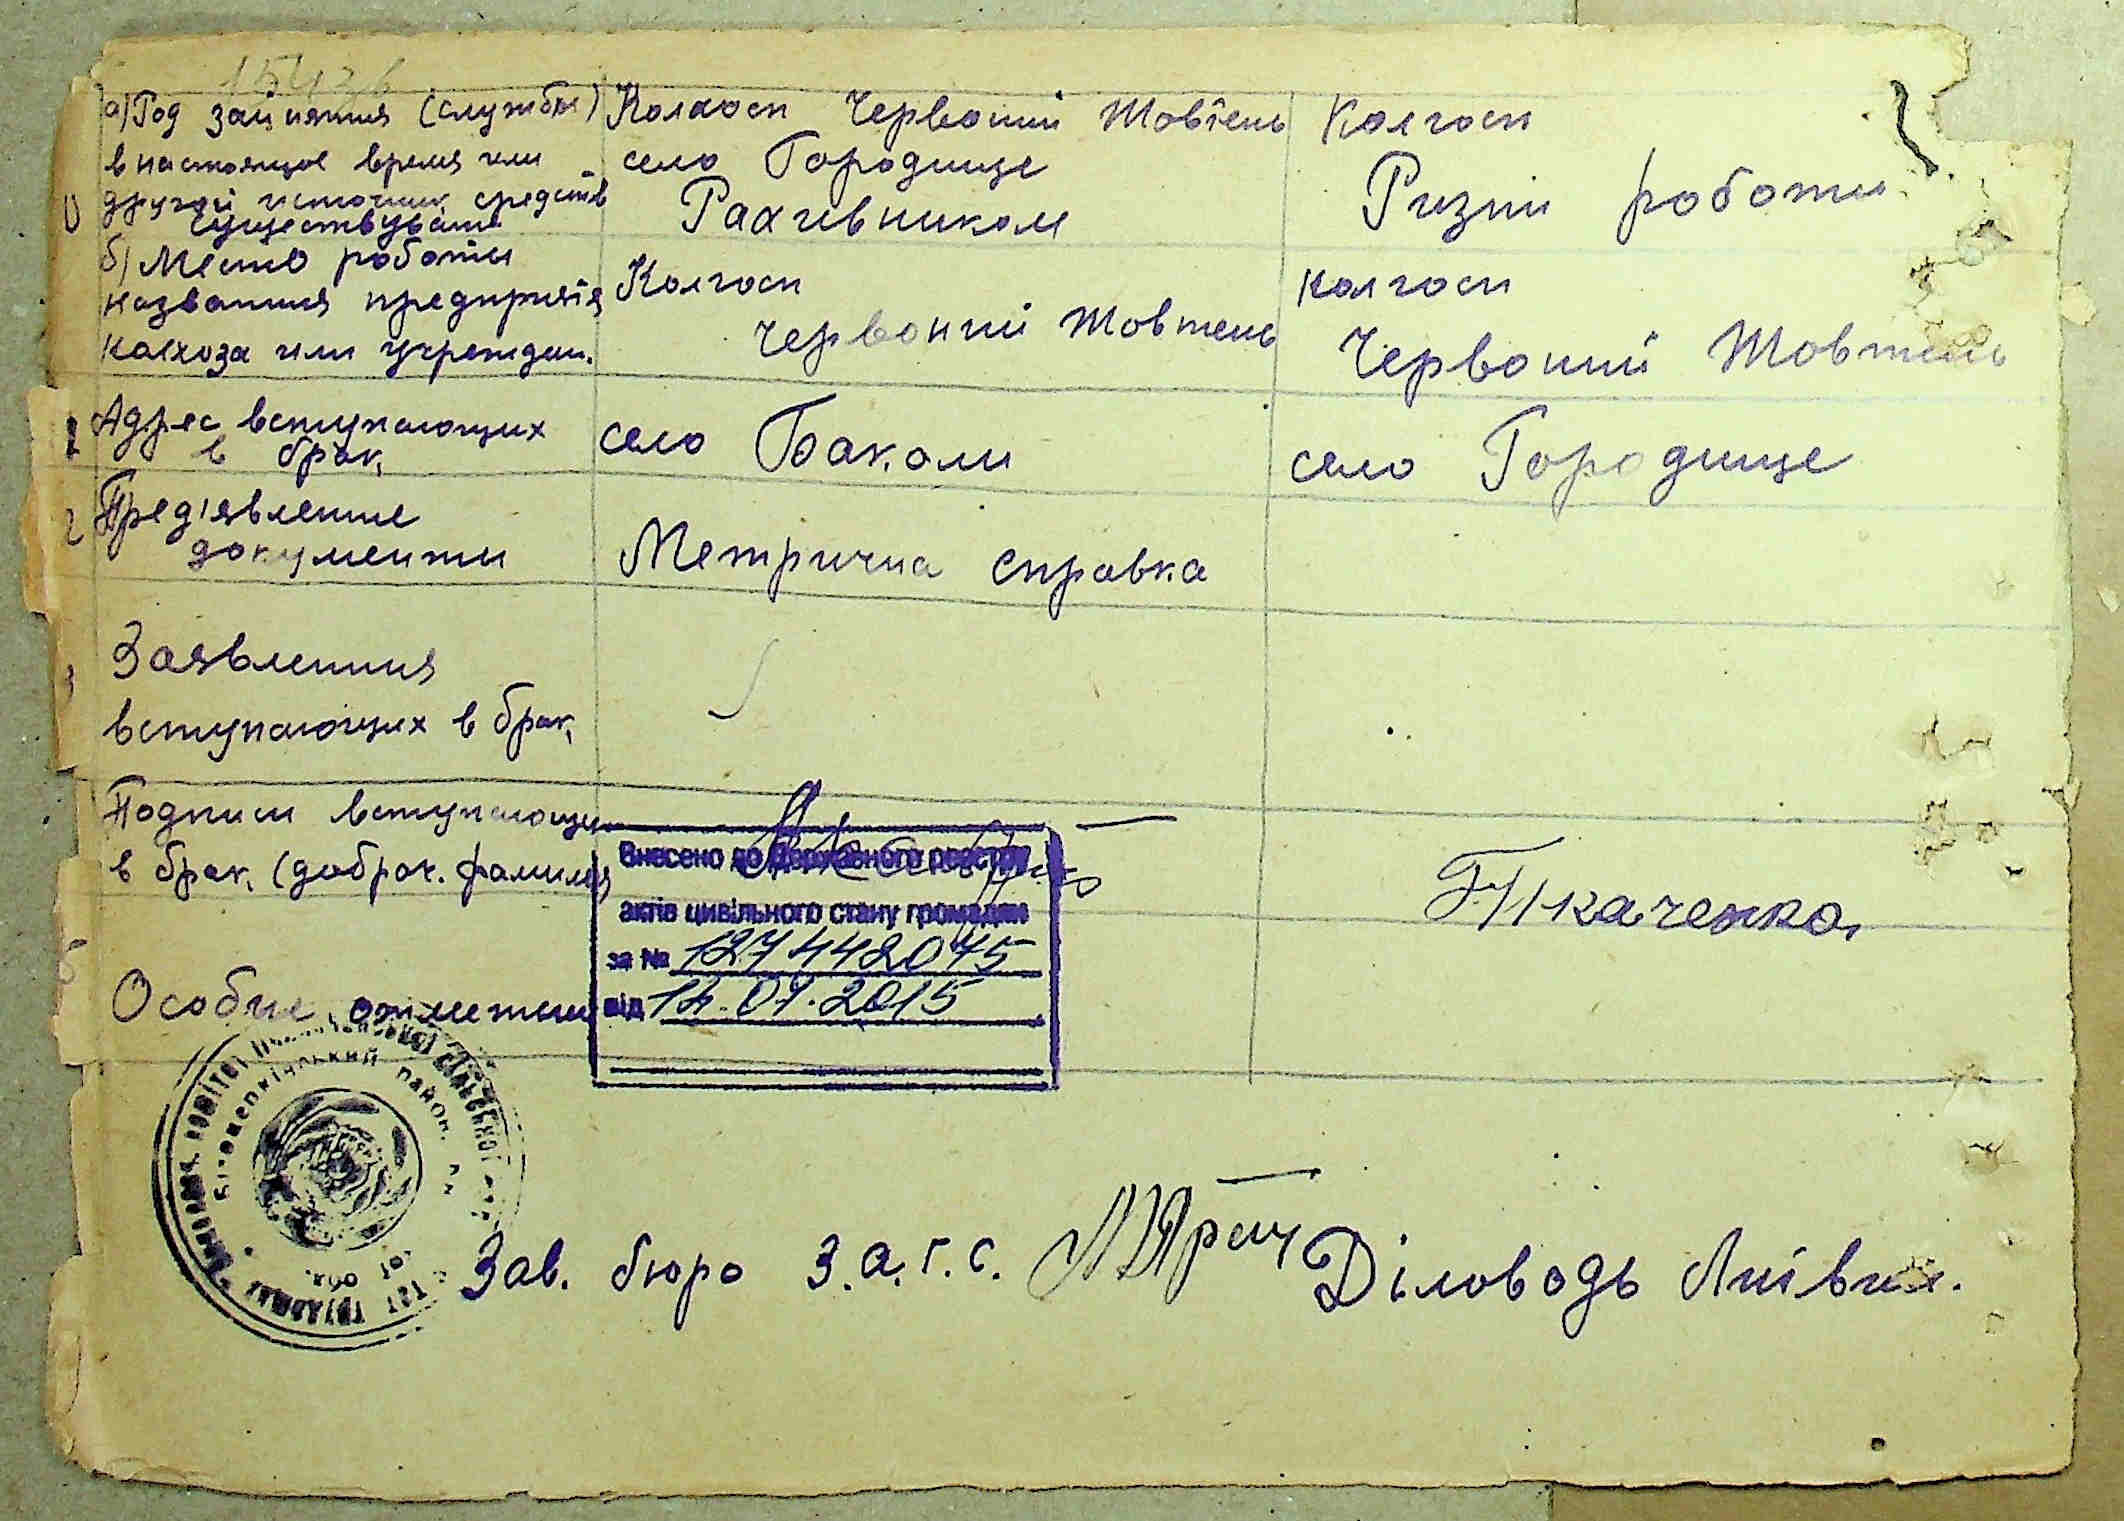 а) Год зайняття (службы)
в настоящое время или
другой источник средств
существування
Колхосп Червоний Жовтень
село Городище
Рахивником
Колгосп
Ризні роботи
б) Место роботи
названия предприятія
колхоза или учрежден.
Колгосп
Червоний Жовтень
колгосп
Червоний Жовтень
Адрес вступающих
в брак
село Бакали
село Городище
2 Предъявленние
документи
Метрична справка
Заявленния
вступающих в брак
Подписи вступающи
в брак (добрач. фамилия
Ткаченко
Внесено до Державного реєстру
актів цивільного стану громадян
за № 127442045
від 14.07.2015
Особие отметки
Зав. бюро З.а.г.с.
Діловодь